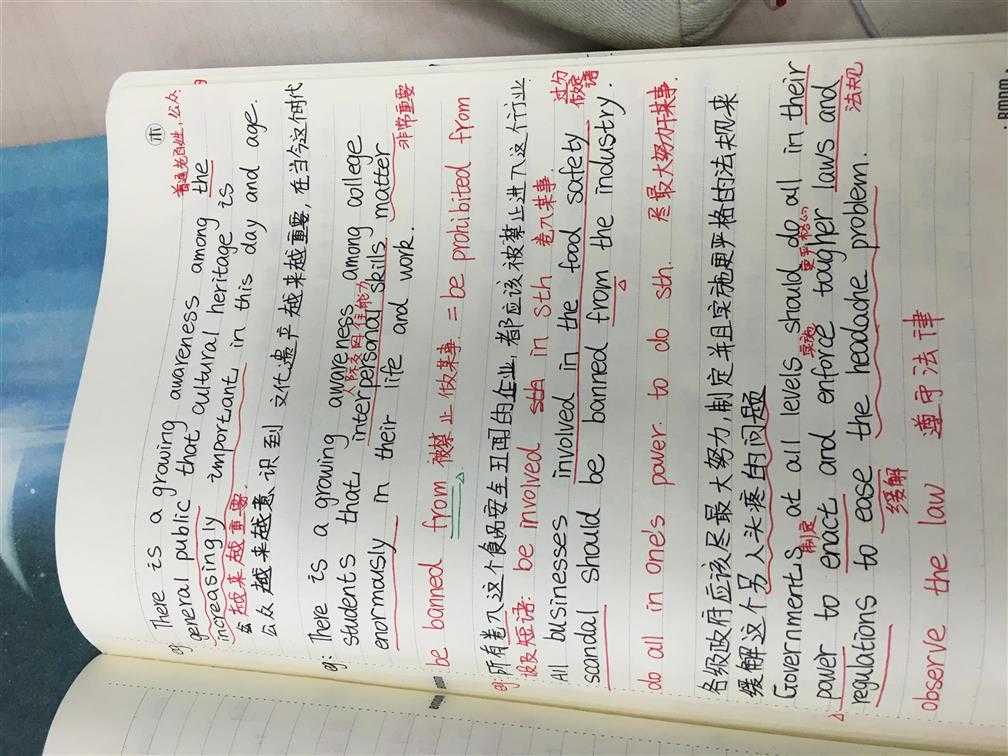 普通老百姓，公众
eg There is a growing awareness among the
general public that cultural heritage is
increasingly important in this day and age.
越来越重要
公众越来越意识到 文化遗产越来越重要，在当今这个时代
eg: There is a growing awareness among college
人际交往能力
students that interpersonal skills matter
非常重要
enormously in their life and work.
be banned from 被禁止做某事 = be prohibited from
eg: 所有卷入这个食品安全丑闻的企业，都应该被禁止进入这个行业
短语: be involved in sth 卷入某事
All businesses involved in the food safety
scandal should be banned from the industry.
do all in one's power to do sth. 尽最大努力干某事.
各级政府应该尽最大努力，制定并且实施更严格的法规来
缓解这个另人头疼的问题
Governments at all levels should do all in their
制定 实施 更严格的
power to enact and enforce tougher laws and
法规
regulations to ease the headache problem.
缓解
observe the law 遵守法律